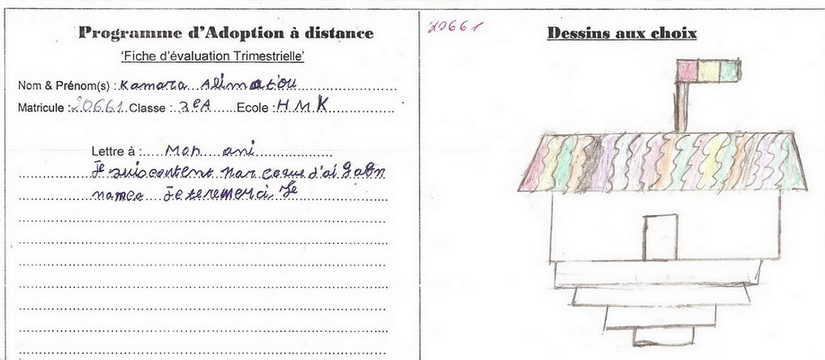 Programme d'Adoption à distance
'Fiche d'évaluation Trimestrielle'
Nom & Prénom(s) : Kamara Alimatou
Matricule : 20661 Classe : 3eA Ecole : HMK
Lettre à : Mon ami
Je suis content par ce que d'ai
name Je te remerci Je
20661
Dessins aux choix